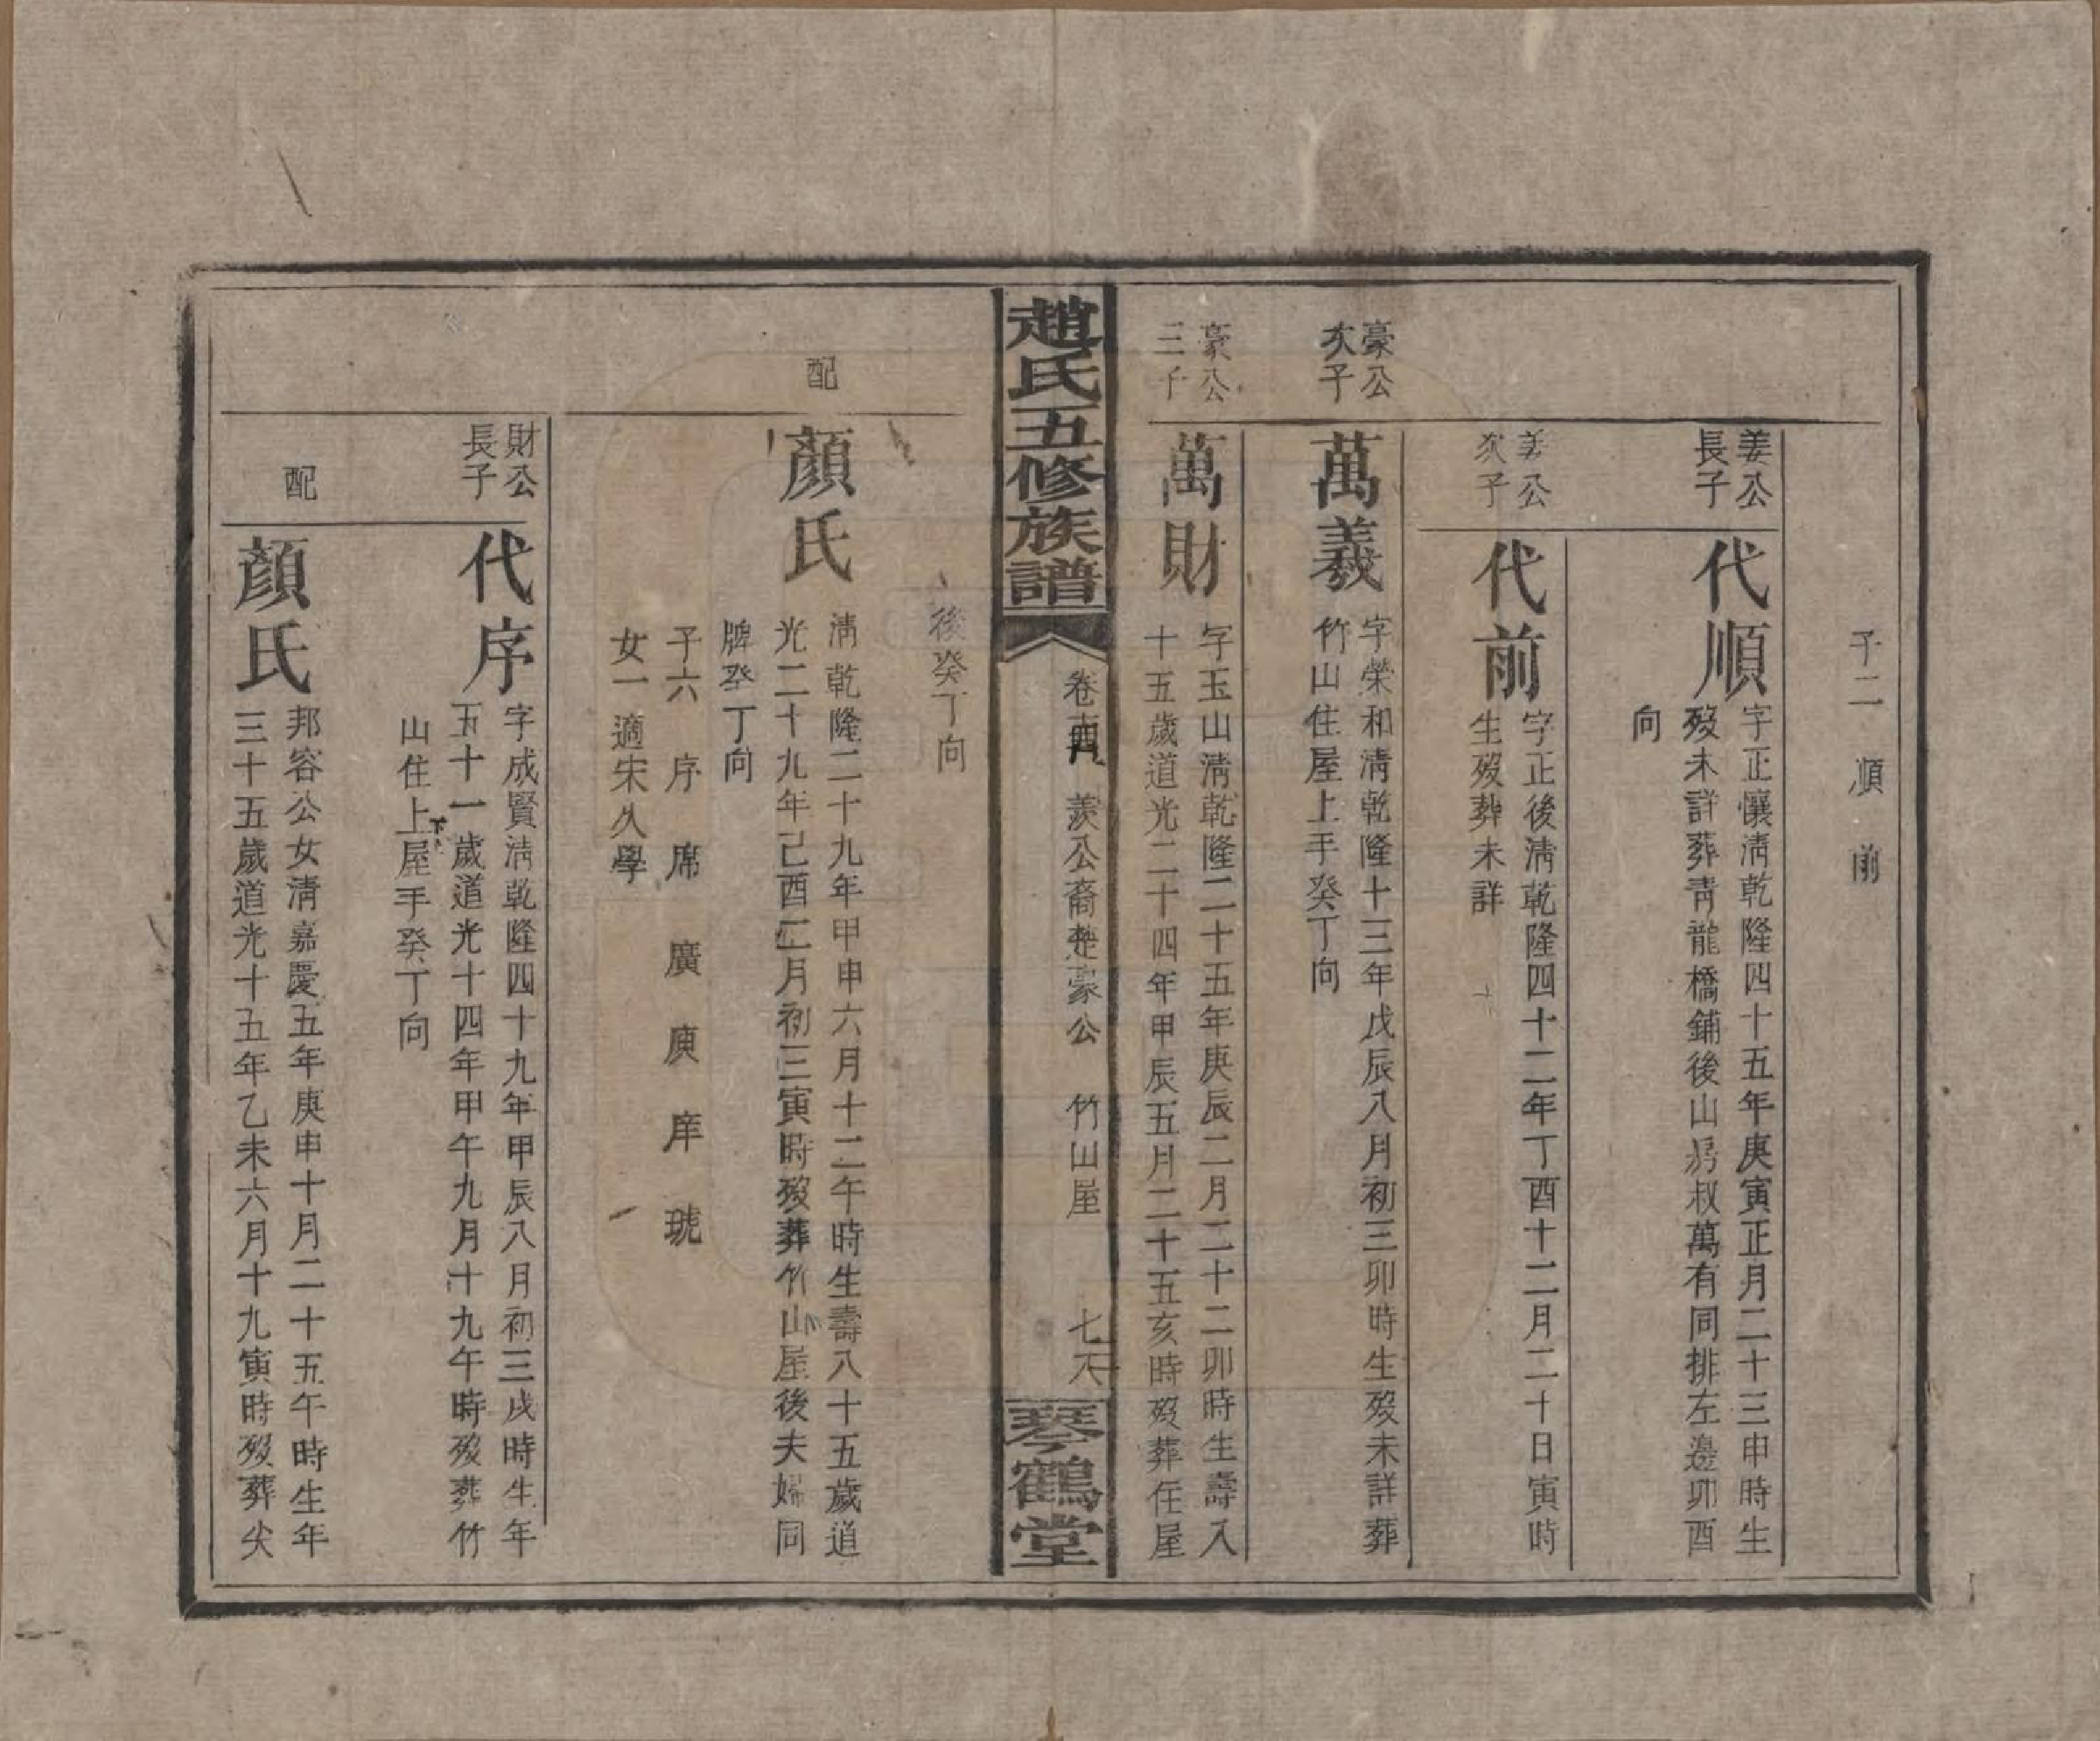 子二 順 前
姜公
長子
代順
字正懷清乾隆四十五年庚寅正月二十三申時生
歿未詳葬青龍橋鋪後山房叔萬有同排左邊卯酉
向
姜公
次子
代前
字正後清乾隆四十二年丁酉十二月二十日寅時
生歿葬未詳
豪公
次子
萬義
字榮和清乾隆十三年戊辰八月初三卯時生歿未詳葬
竹山住屋上手癸丁向
豪公
三子
萬財
字玉山清乾隆二十五年庚辰二月二十二卯時生壽八
十五歲道光二十四年甲辰五月二十五亥時歿葬住屋
趙氏五修族譜
卷 羨公裔楚豪公 竹山屋 七
琴鶴堂
後癸丁向
配
顏氏
清乾隆二十九年甲申六月十二午時生壽八十五歲道
光二十九年己酉二月初三寅時歿葬竹山屋後夫婦同
牌癸丁向
子六 序 席 廣 庚 庠 琥
女一適宋久學
財公
長子
代序
字成賢清乾隆四十九年甲辰八月初三戌時生年
五十一歲道光十四年甲午九月十九午時歿葬竹
山住上屋手癸丁向
配
顏氏
邦容公女清嘉慶五年庚申十月二十五午時生年
三十五歲道光十五年乙未六月十九寅時歿葬尖